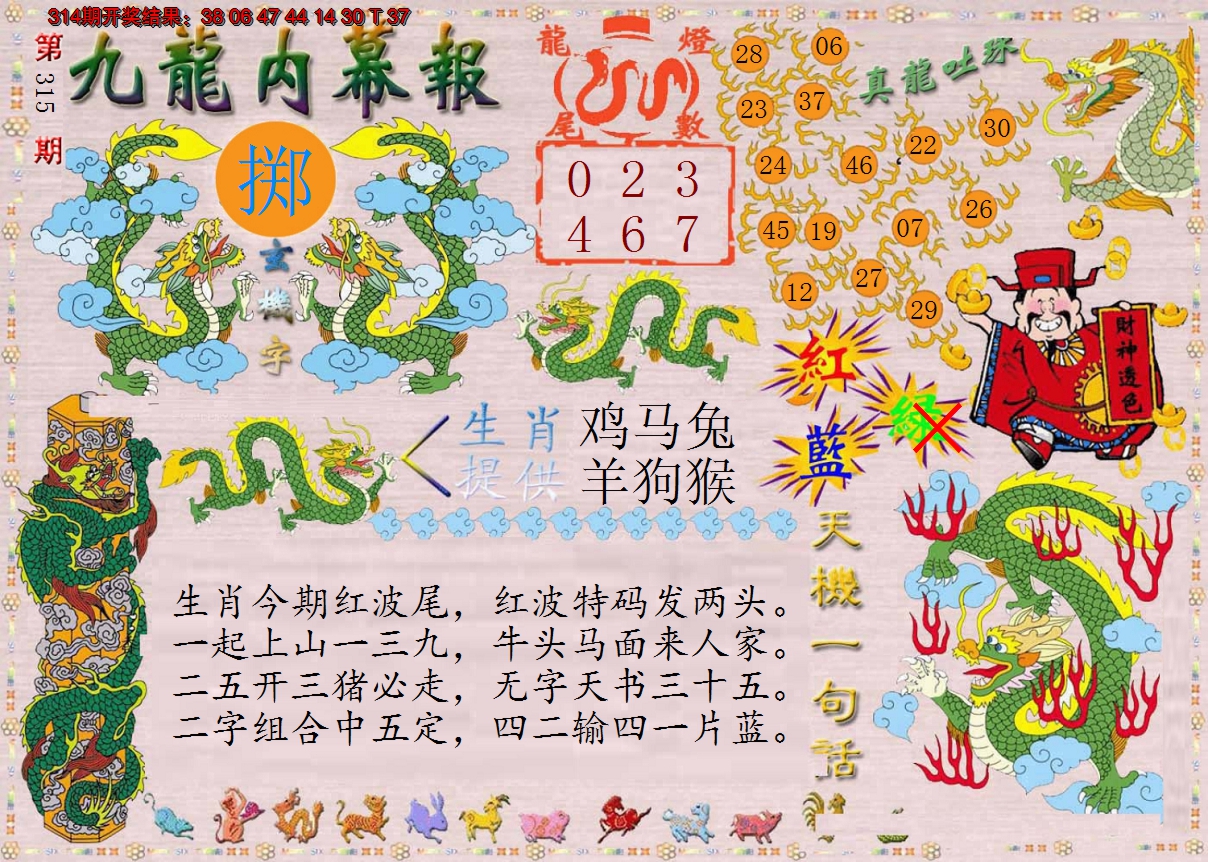 314期开奖结果：38 06 47 44 14 30 T 37
第315期
九龍内幕報
掷
玄機字
龍燈尾數
0 2 3
4 6 7
真龍吐珠
28 06
23 37
24 46 22 30
45 19 07 26
12 27 29
財神透色
紅
綠
藍
生肖 鸡马兔
提供 羊狗猴
天機一句话
生肖今期红波尾，红波特码发两头。
一起上山一三九，牛头马面来人家。
二五开三猪必走，无字天书三十五。
二字组合中五定，四二输四一片蓝。